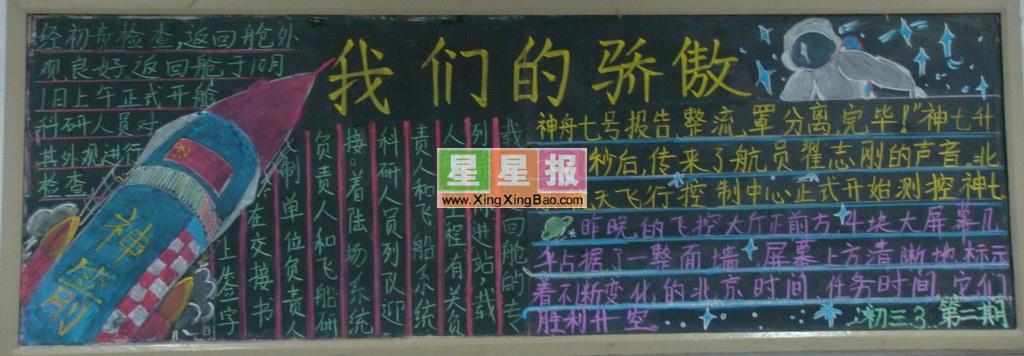 我们的骄傲
经初步检查,返回舱外
观良好,返回舱于10月
1日上午正式开舱
科研人员对
其外观进行
检查
神箭
载
回舱的专
列 进站,载
人 工程有关负
责人和飞船系统
科研人员列队迎
接。着陆场系统
负责人和飞船研
制单位负责人
在交接书
上签字
星星报
www.XingXingBao.com
神舟七号报告,整流,罩分离,完毕!"神七升
秒后,传来了航 员翟志刚的声音,北
天飞行控制中心正式开始测控神七
昨晚的飞控大厅正前方,4块大屏幕几
乎占据了一整面墙,屏幕上方清晰地标示
着不断变化的北京时间,任务时间,它们
胜利升空。
初三3 第二期